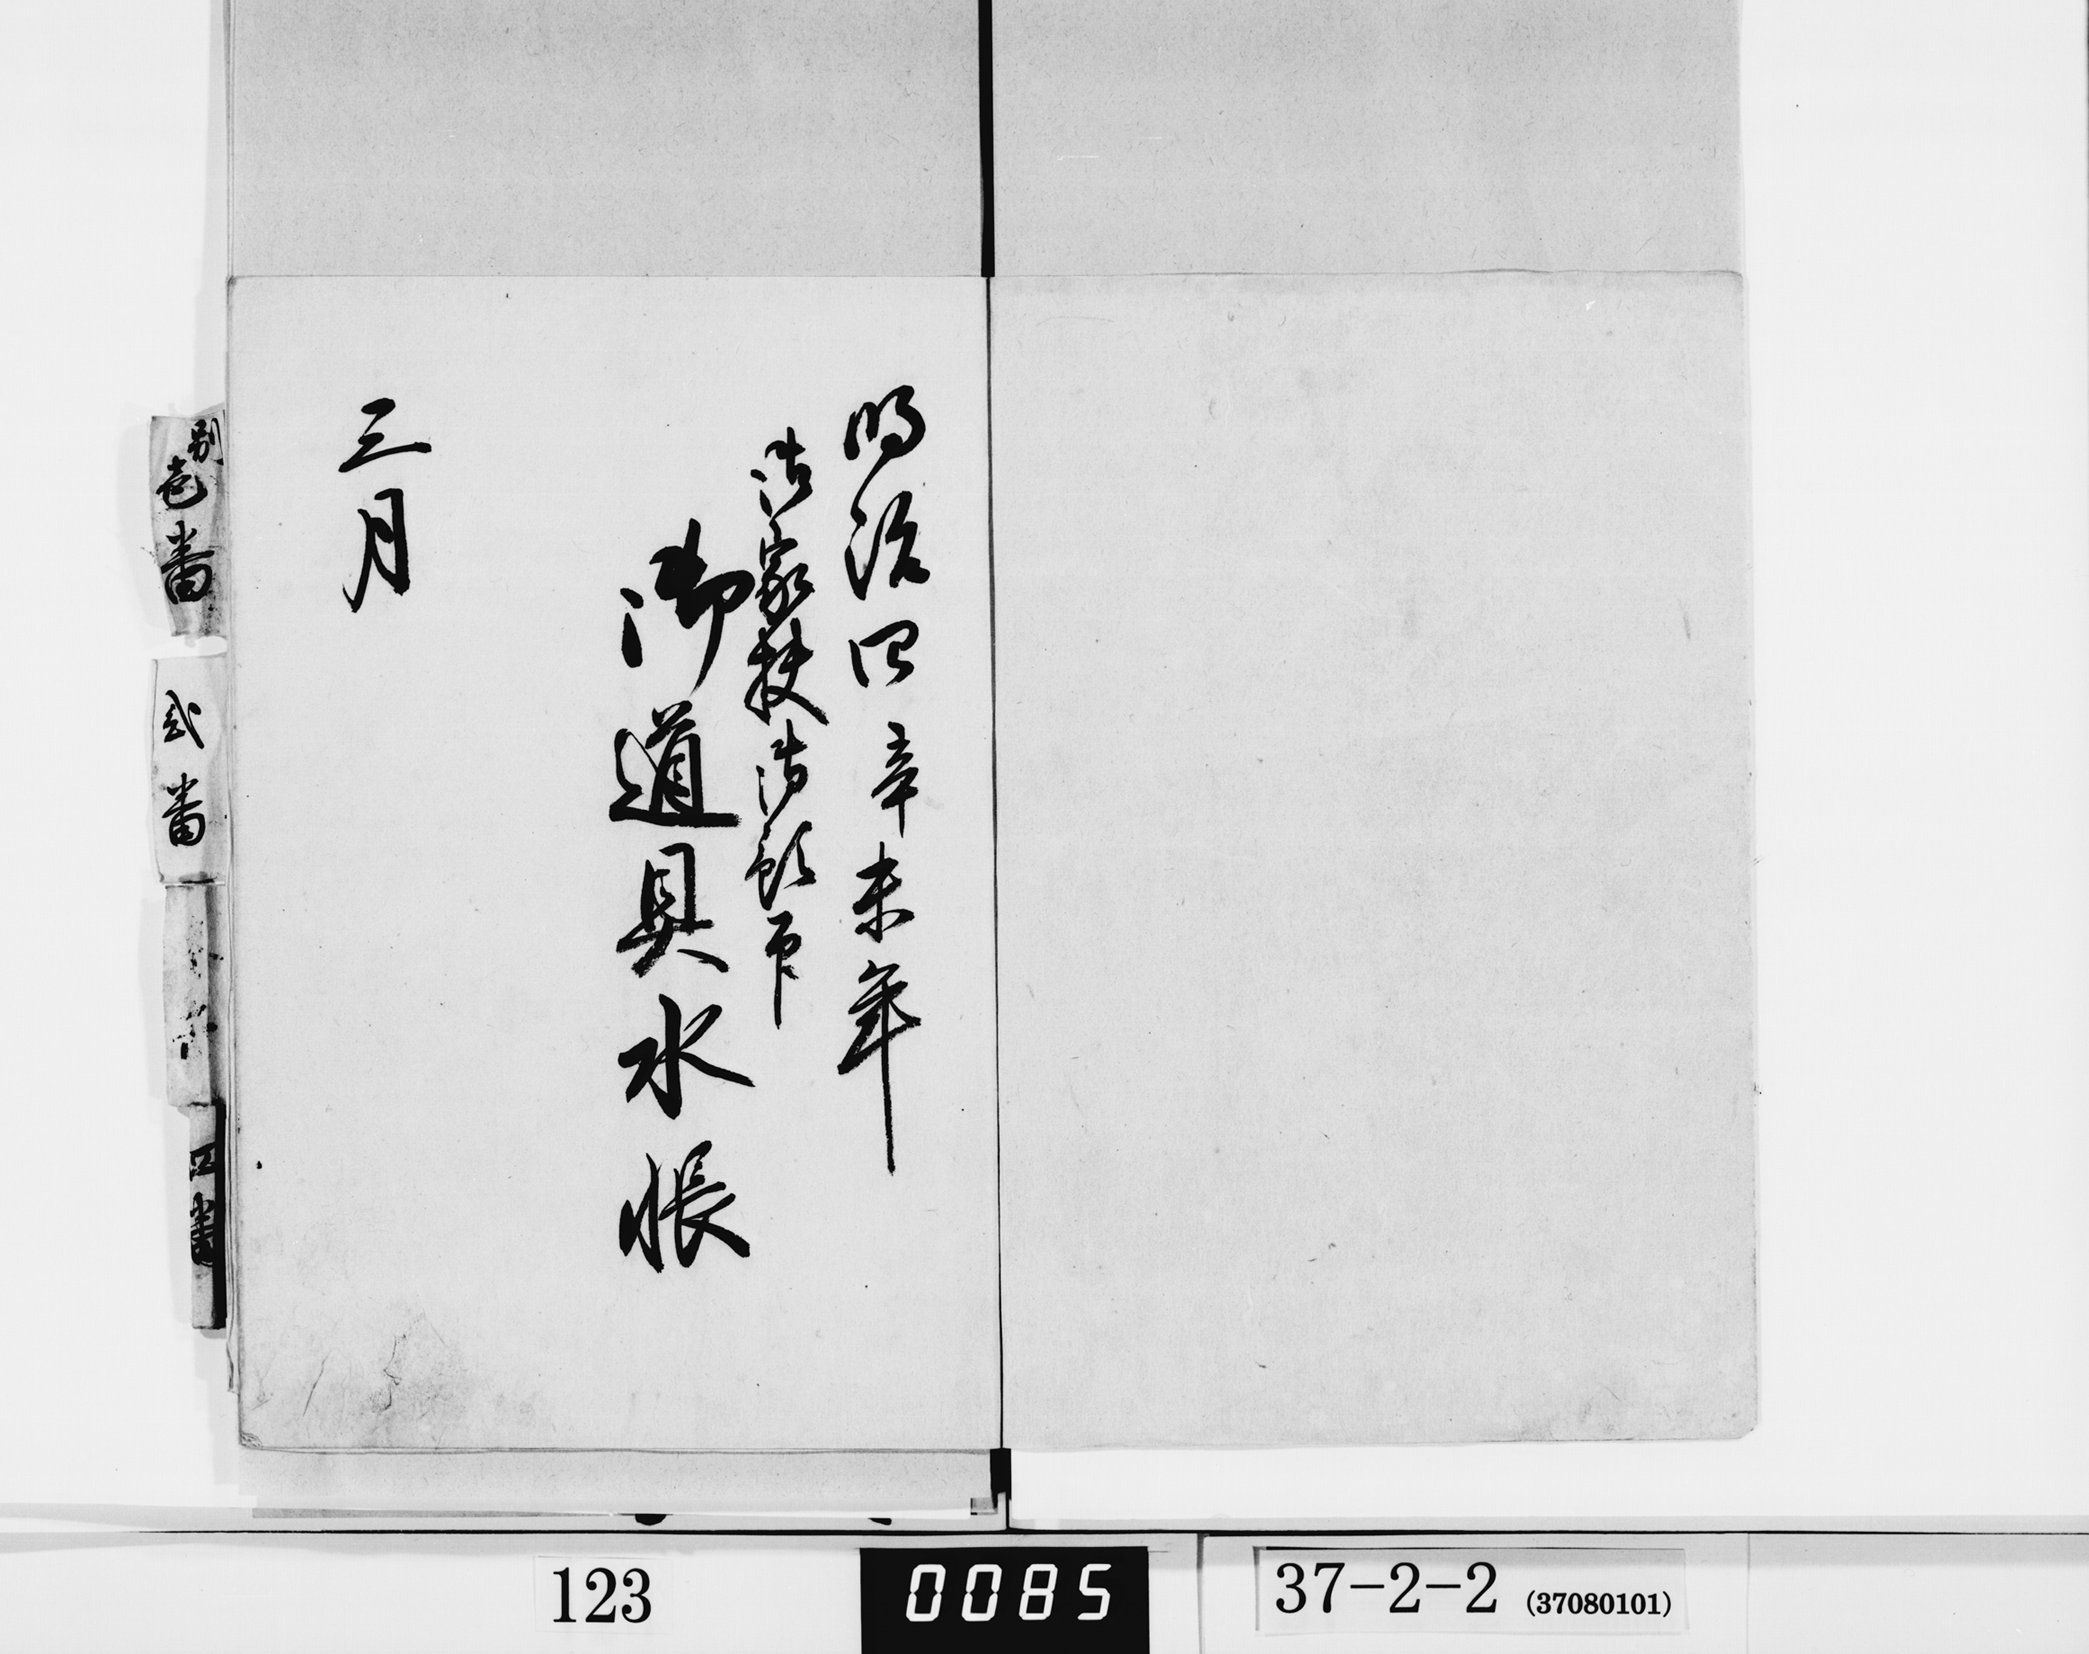 明治四辛未年
御家扶御預下
御道具水帳
三月
別
壱番
弐番
四番
123
0085
37-2-2 (37080101)